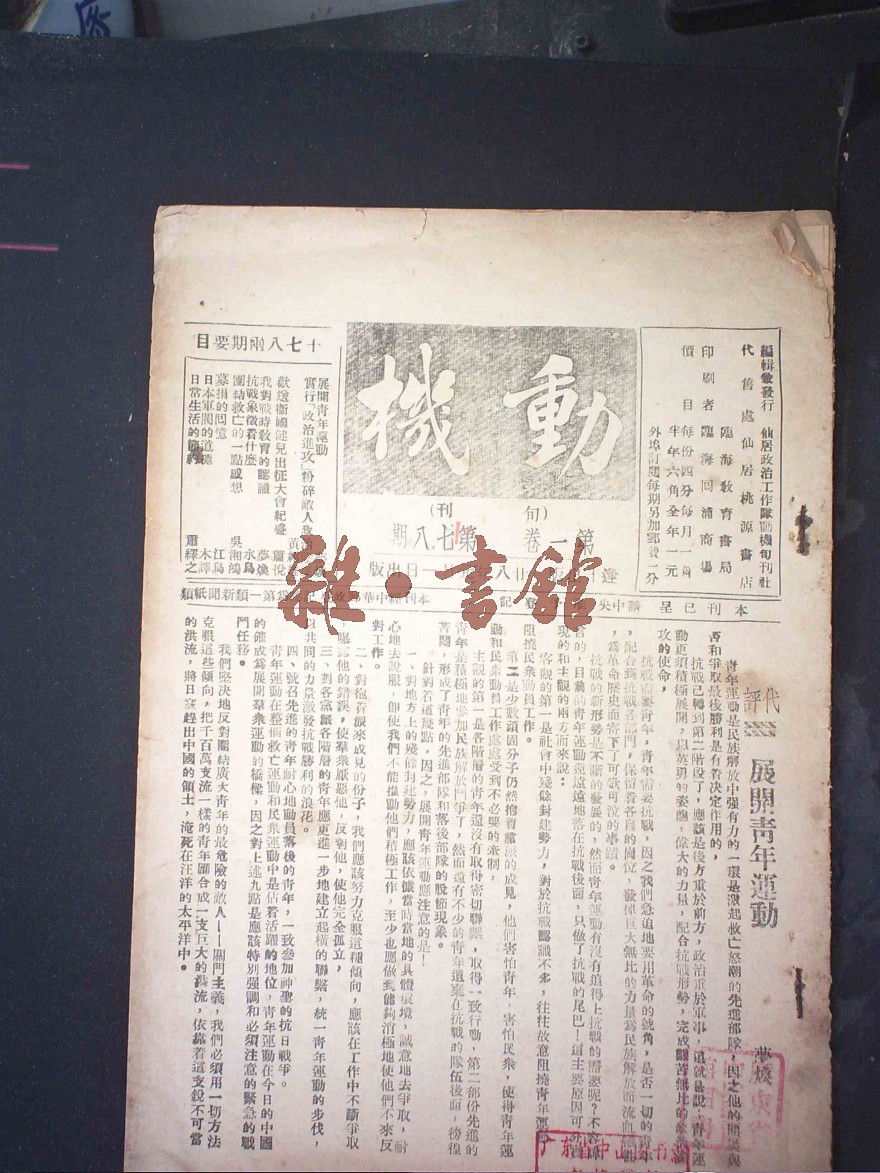 編輯兼發行 仙居政治工作隊動機旬刊社
代售處 仙居桃源書店
臨海教育書局
印刷者 臨海回浦商場
價目 每份四分每月一角
半年六角全年一元
外埠訂閱每期另加郵費一分
動機
(旬刊)
第一卷 第十七八期
十七八兩期要目
展開青年運動 夢煥
實行「政治進攻」粉碎敵人
歡送衛國健兒出征大會紀盛 蕭悅
我對戰時教育的認識 夢煥
抗戰象徵着什麼 永鳥
團結救亡的一點感想 吳湘鴻
募捐的回憶 江鳥
日本軍閥的道德 木譯
日常生活的 蕭繹之
本刊已呈請中央
登記
第一類新聞紙類
雜·書館
代評
展開青年運動
夢煥
青年運動是民族解放中强有力的一環是激起救亡怒潮的先進部隊,因之他的開展與
否和爭取最後勝利是有着决定作用的,
抗戰已轉到第二階段了,應該是後方重於前方,政治重於軍事,這就是說,青年運
動更須積極展開,以英勇的姿態,偉大的力量,配合抗戰形勢,完成艱苦無比的
攻的使命,
抗戰需要青年,青年需要抗戰,因之我們急迫地要用革命的號角,是否一切的青年
,配合到抗戰各部門,保留着各自的崗位,發揮巨大無比的力量爲民族解放而流血
,爲革命歷史而寄下了可歌可泣的事蹟。
抗戰的新形勢是不斷的發展的,然而青年運動有沒有追得上抗戰的需要呢?不容
言的,目前的青年運動還遠遠地落在抗戰後面,只做了抗戰的尾巴!這主要原因可分客
現的和主觀的兩方而來說:
客觀的第一是社會中殘餘封建勢力,對於抗戰認識不多,往往故意阻撓青年運
阻撓民衆動員工作。
第二是少數頑固分子仍然抱着黨派的成見,他們害怕青年,害怕民衆,使得青年運
動和民衆動員工作處處受到不必要的牽制,
主觀的第一是各階層的青年還沒有取得密切聯繫,取得一致行動,第二部份先進的
青年是積極地參加民族解放鬥爭了,然而還有不少的青年遺棄在抗戰的隊伍後面,徬徨
苦悶,形成了青年的先進部隊和落後部隊的脫節現象。
針對着這幾點,因之,展開青年運動應注意的是!
一、對地方上的殘餘封建勢力,應該依據當時當地的具體環境,誠意地去爭取,耐
心地去說服,卽使我們不能推動他們積極工作,至少也應做到能夠消極地使他們不來反
對工作。
二、對抱着派來成見的份子,我們應該努力克服這種傾向,應該在工作中不斷爭取
,暴露他的錯誤,使羣衆厭惡他,反對他,使他完全孤立,
三、對各黨派各階層的青年應更進一步地建立起橫的聯繫,統一青年運動的步伐,
以共同的力量激發抗戰勝利的浪花。
四、號召先進的青年耐心地動員落後的青年,一致參加神聖的抗日戰爭。
青年運動在整個救亡運動和民衆運動中是佔着活躍的地位,青年運動在今日的中國
的確成爲展開羣衆運動的橋樑,因之對上述九點是應該特別强調和必須注意的緊急的戰
鬥任務。
我們堅決地反對團結廣大青年的最危險的敵人——關門主義,我們必須用一切方法
克服這些傾向,把千百萬支流一樣的青年匯合成一支巨大的洪流,依靠着這支銳不可當
的洪流,將日寇趕出中國的領土,淹死在汪洋的太平洋中。